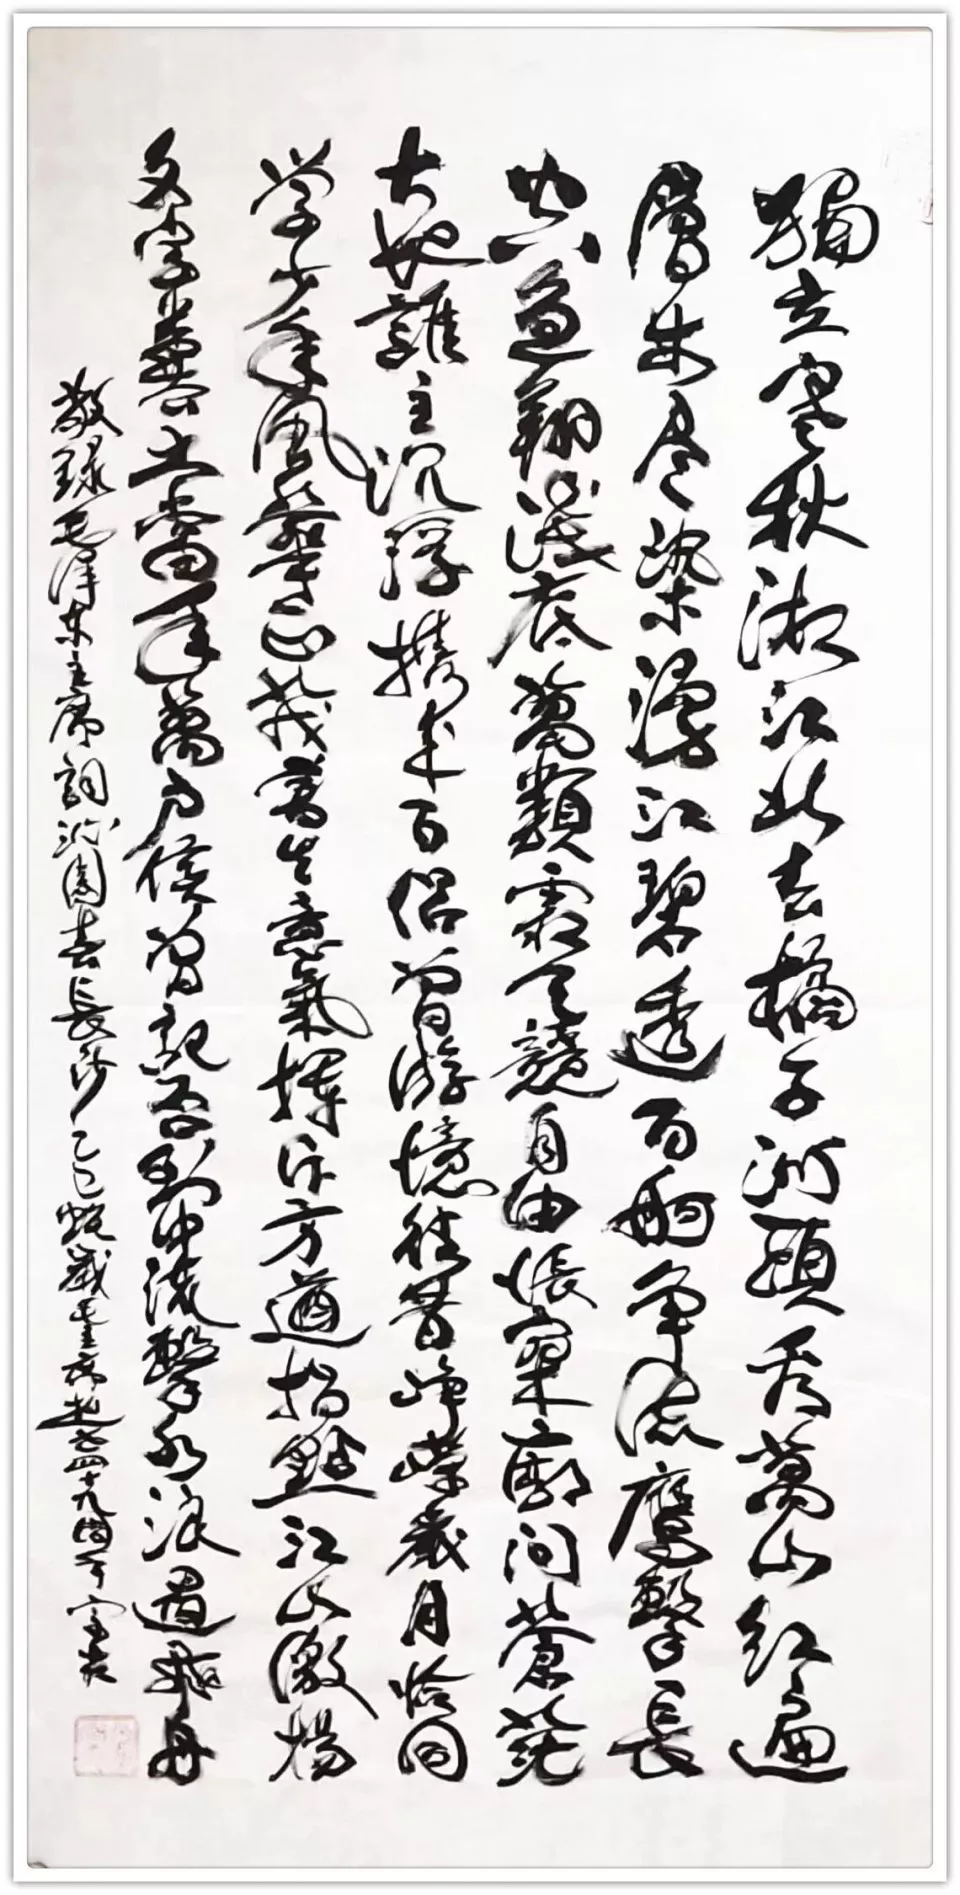 獨立寒秋湘江北去橘子洲頭看萬山紅遍
層林尽染漫江碧透百舸争流鷹擊長
空魚翔淺底萬類霜天競自由悵寥廓問蒼茫
大地誰主沉浮攜来百侣曾游憶往昔崢嶸歲月恰同
学少年風華正茂書生意氣揮斥方遒指點江山激揚
文字糞土當年萬户侯曾記否到中流擊水浪遏飛舟
敬録毛澤東主席詞沁園春長沙乙巳蛇歲毛主席逝世四十九周年